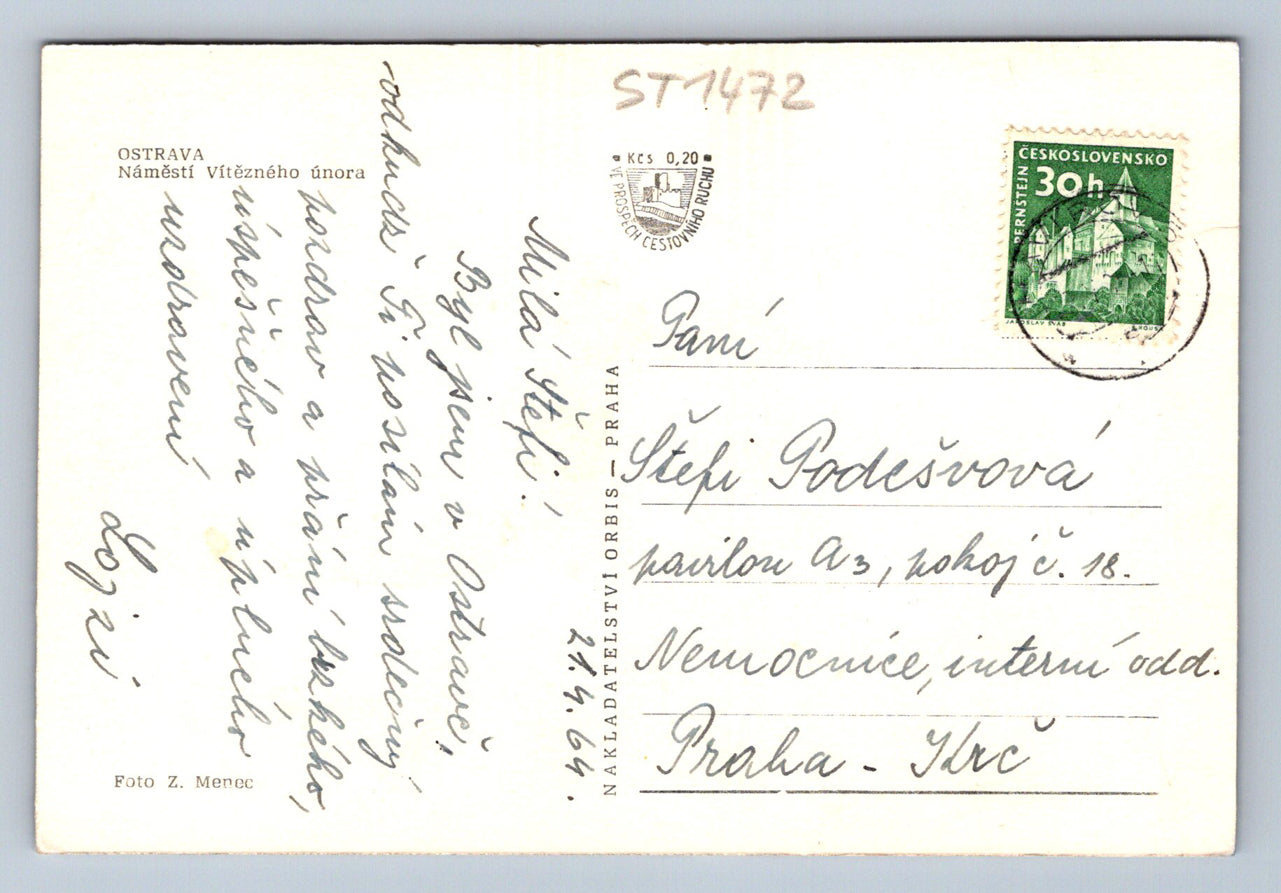 ST1472
OSTRAVA
Náměstí Vítězného února
Kčs 0,20
VE PROSPĚCH CESTOVNÍHO RUCHU
ČESKOSLOVENSKO
30h
PERNŠTEJN
JAROSLAV ŠVÁB
21.4.64.
Milá Štefi!
Byl jsem v Ostravě,
odkudž Ti posílám srdečný
pozdrav a přání brzkého,
úspěšného a úplného
uzdravení
Lojzí
NAKLADATELSTVÍ ORBIS — PRAHA
Paní
Štefi Podešvová
pavilon A3, pokoj č. 18.
Nemocnice, interní odd.
Praha - Krč
Foto Z. Menec